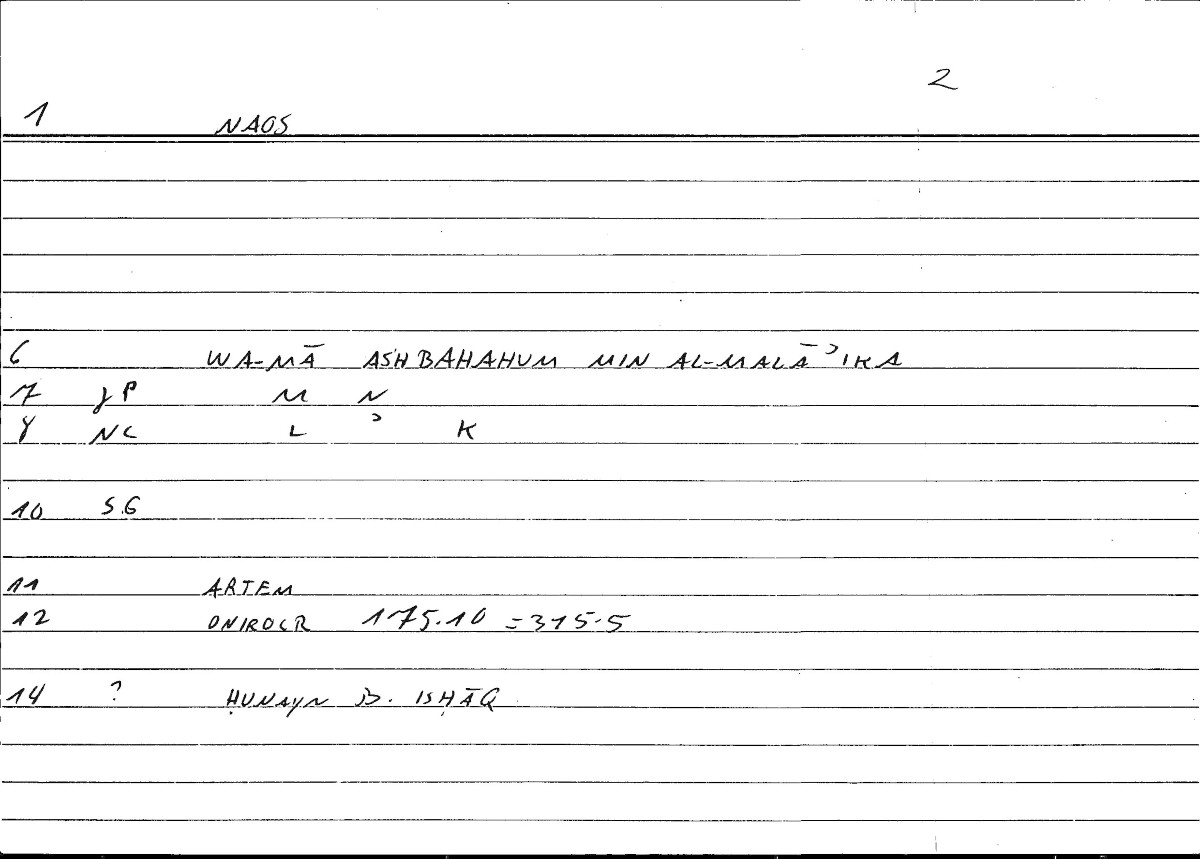 2
1 NAOS
6 WA-MĀ ASHBAHAHUM MIN AL-MALĀʾIKA
7 γP M N
8 NC L ʾ K
10 S.G
11 ARTEM
12 ONIROCR 175.10 = 315.5
14 ? ḤUNAYN B. ISḤĀQ